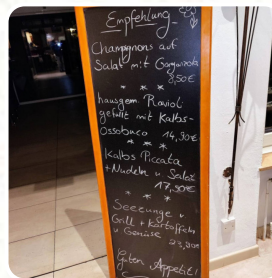 Empfehlung
Champignons auf
Salat mit Gorgonzola
8,50€
* * *
hausgem. Ravioli
gefüllt mit Kalbs-
Ossobuco 14,90€
* * *
Kalbs Piccata
+ Nudeln u. Salat
17,90€
* * *
Seezunge v.
Grill + Kartoffeln
u Gemüse
Guten Appetit!